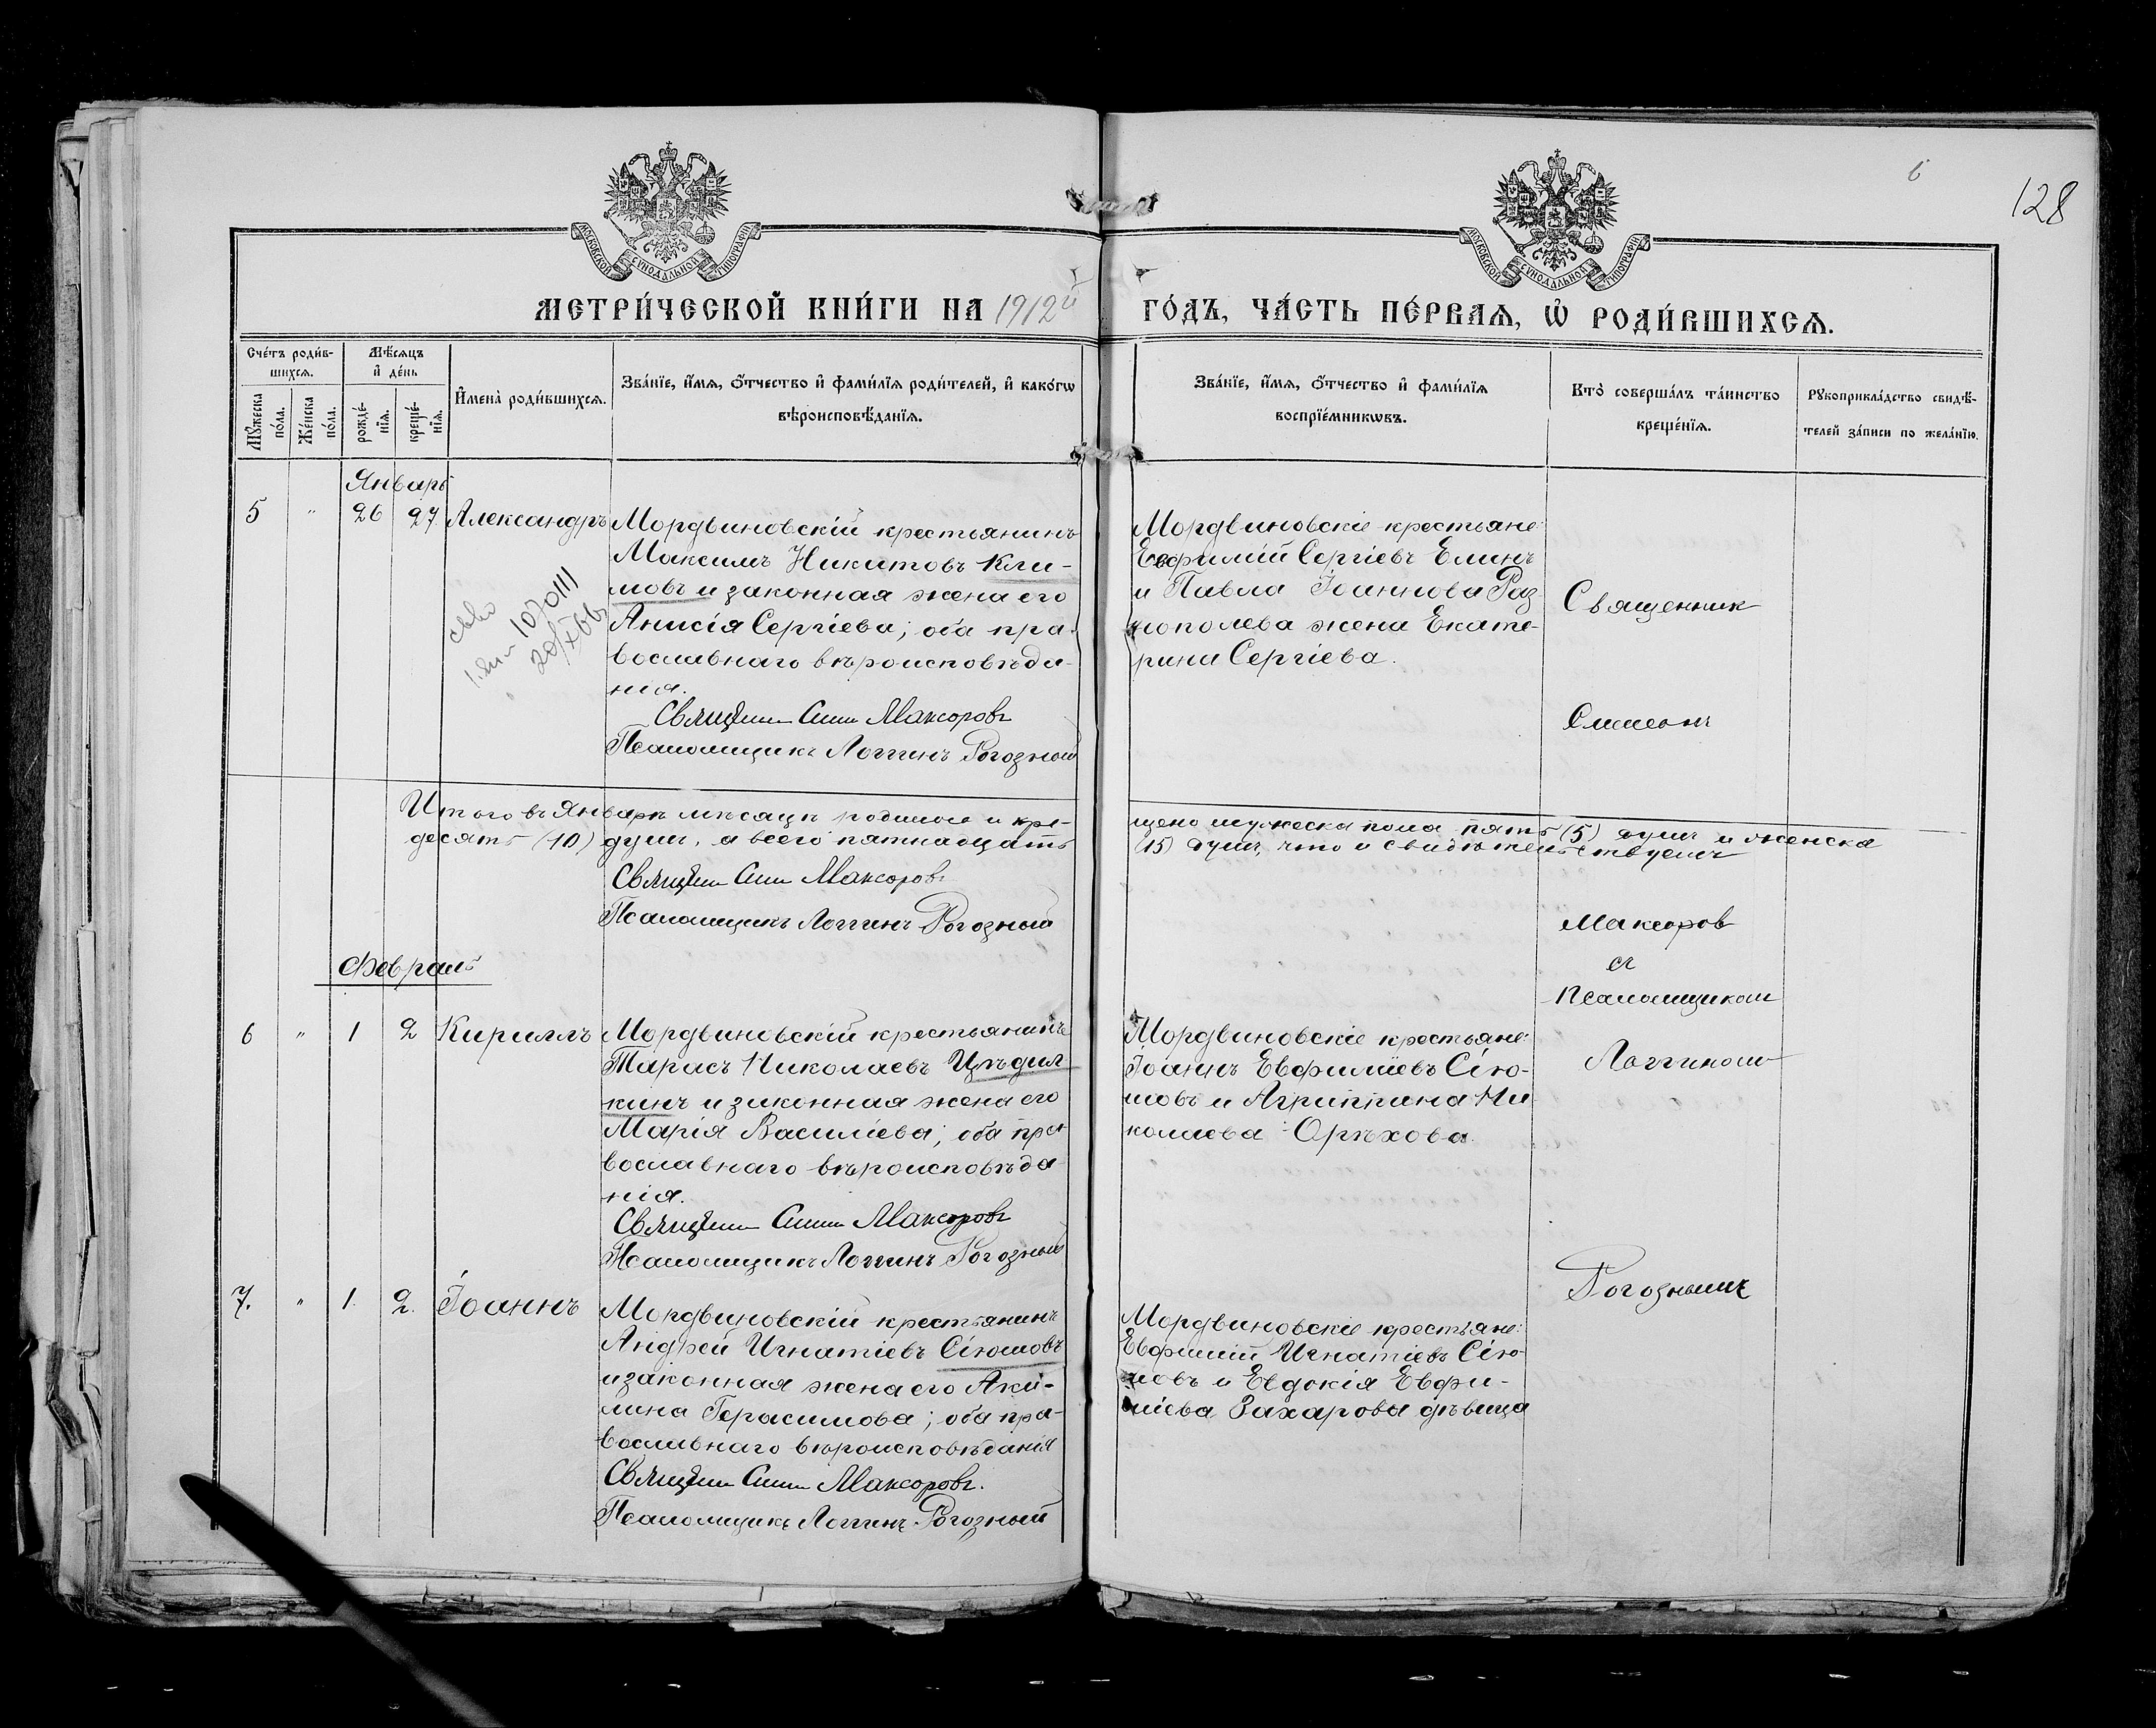 6
128
МОСКОВСКОЙ СѴНОДАЛЬНОЙ ТИПОГРАФІИ
МОСКОВСКОЙ СѴНОДАЛЬНОЙ ТИПОГРАФІИ
МЕТРИ́ЧЕСКОЙ КНИ́ГИ НА 1912й ГО́ДЪ, ЧА́СТЬ ПЕ́РВАѦ, Ѡ҆ РОДИ́ВШИХСѦ.
Сче́тъ роди́в-
шихсѧ.
Мѣ́сѧцъ
и҆ де́нь
Мꙋ́жеска
по́ла.
Же́нска
по́ла.
рожде́-
нїѧ.
креще́-
нїѧ.
И҆мена̀ роди́вшихсѧ.
Зва́нїе, и҆́мѧ, ѻ҆́тчество и҆ фами́лїѧ роди́телей, и҆ како́гѡ
вѣроисповѣ́данїѧ.
Зва́нїе, и҆́мѧ, ѻ҆́тчество и҆ фами́лїѧ
воспрїе́мникѡвъ.
Кто̀ соверша́лъ та́инство
креще́нїѧ.
Рꙋкоприкла́дство свидѣ́-
телей за́писи по жела́нїю.
Январь
5 " 26 27 Александръ
Мордвиновскій крестьянинъ
Максимъ Никитовъ Кли-
мовъ и законная жена его
Анисія Сергіева; оба пра-
вославнаго вѣроисповѣда-
нія.
Священ Сим Максоровъ
Псаломщикъ Логгинъ Рогозный
1070111
Мордвиновскіе крестьяне:
Евфимій Сергіевъ Елинъ
и Павла Іоаннова Раз
нополева жена Екате-
рина Сергіева.
Священник
Симеонъ
Итого въ Январѣ мѣсяцѣ родилось и кре-
щено мужеска пола пять (5) душъ и женска
десять (10) душъ, а всего пятнадцать
(15) душъ, что и свидѣтельствуемъ
Священ Сим Максоровъ
Псаломщикъ Логгинъ Рогозный
Максоров
съ
Псаломщиком
Февраль
6 " 1 2 Кириллъ
Мордвиновскій крестьянинъ
Тарасъ Николаевъ Цѣдил
кинъ и законная жена его
Марія Василіева; оба пра
вославнаго вѣроисповѣда
нія.
Священ Сим Максоровъ
Псаломщикъ Логгинъ Рогозный
Мордвиновскіе крестьяне:
Іоаннъ Евфиміевъ Сѣю-
мовъ и Агриппина Ни
колаева Орѣхова.
Логгином
Рогознымъ
7. " 1. 2. Іоаннъ
Мордвиновскій крестьянинъ
Андрей Игнатіевъ Сіюмовъ
и законная жена его Аки-
лина Герасимова; оба пра-
вославнаго вѣроисповѣданія
Священ Сим Максоровъ.
Псаломщикъ Логгинъ Рогозный
Мордвиновскіе крестьяне:
Евфимій Игнатіевъ Сію-
мовъ и Евдокія Евфи-
міева Захарова дѣвица